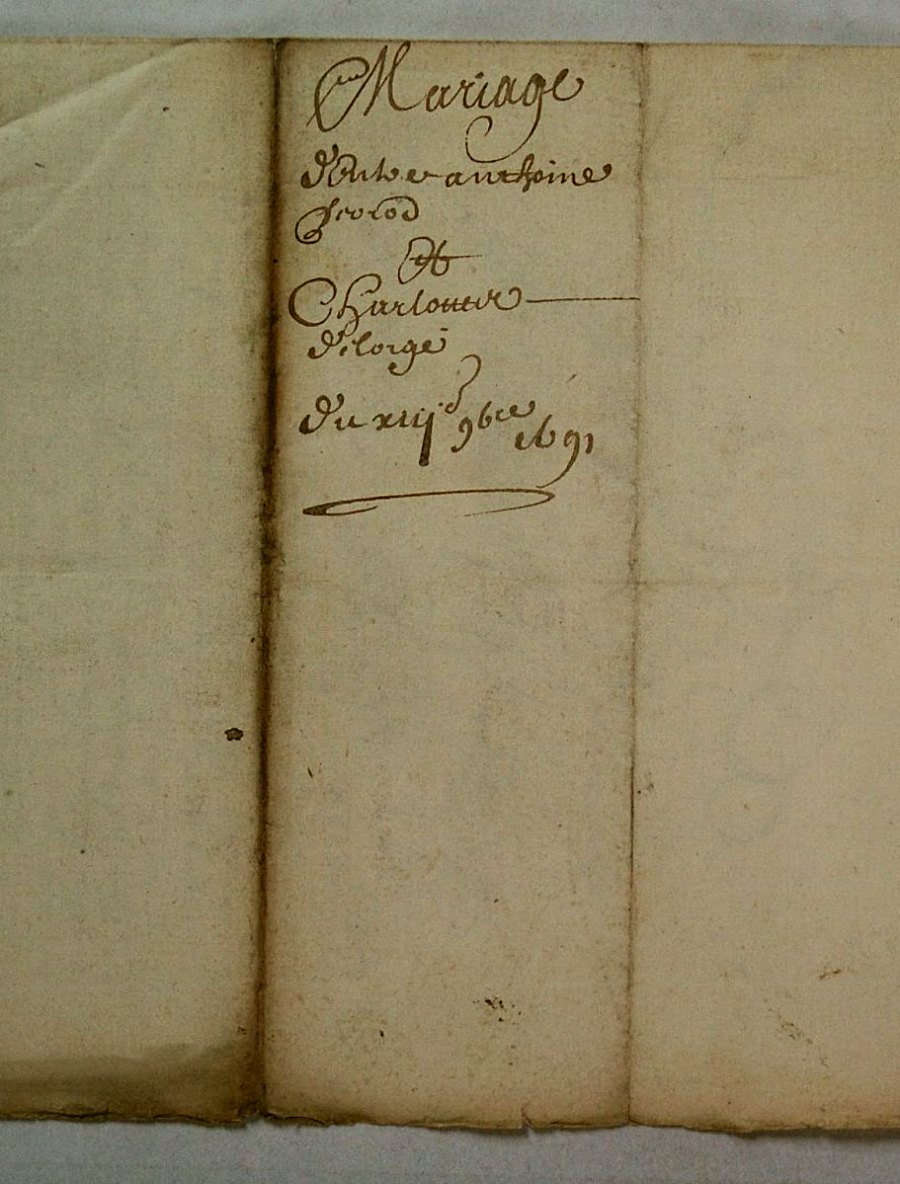 Mariage
d'Entre anthoine
Et
Charlotte
d'elorge
du xiij 9bre 1691